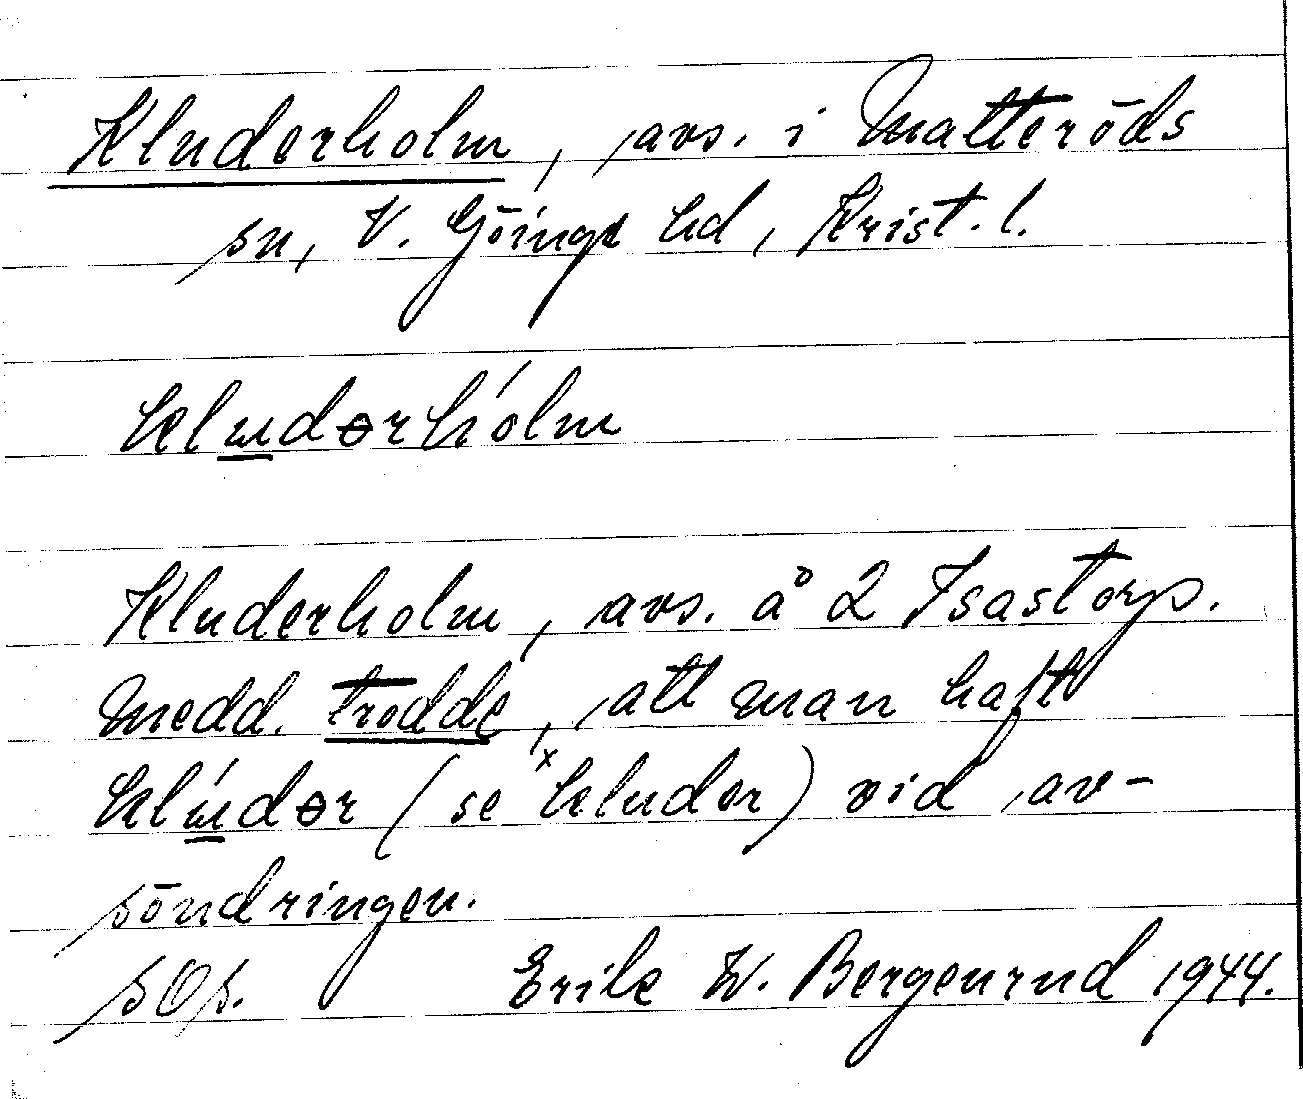 Kluderholm, avs. i Matteröds
sn, V. Göinge hd, Krist. l.
kludərhólm
Kluderholm, avs. å 2 Isastorp.
Medd. trodde, att man haft
klúdər (se ˣkluder) vid av-
söndringen.
sOs. Erik W. Bergenrud 1944.